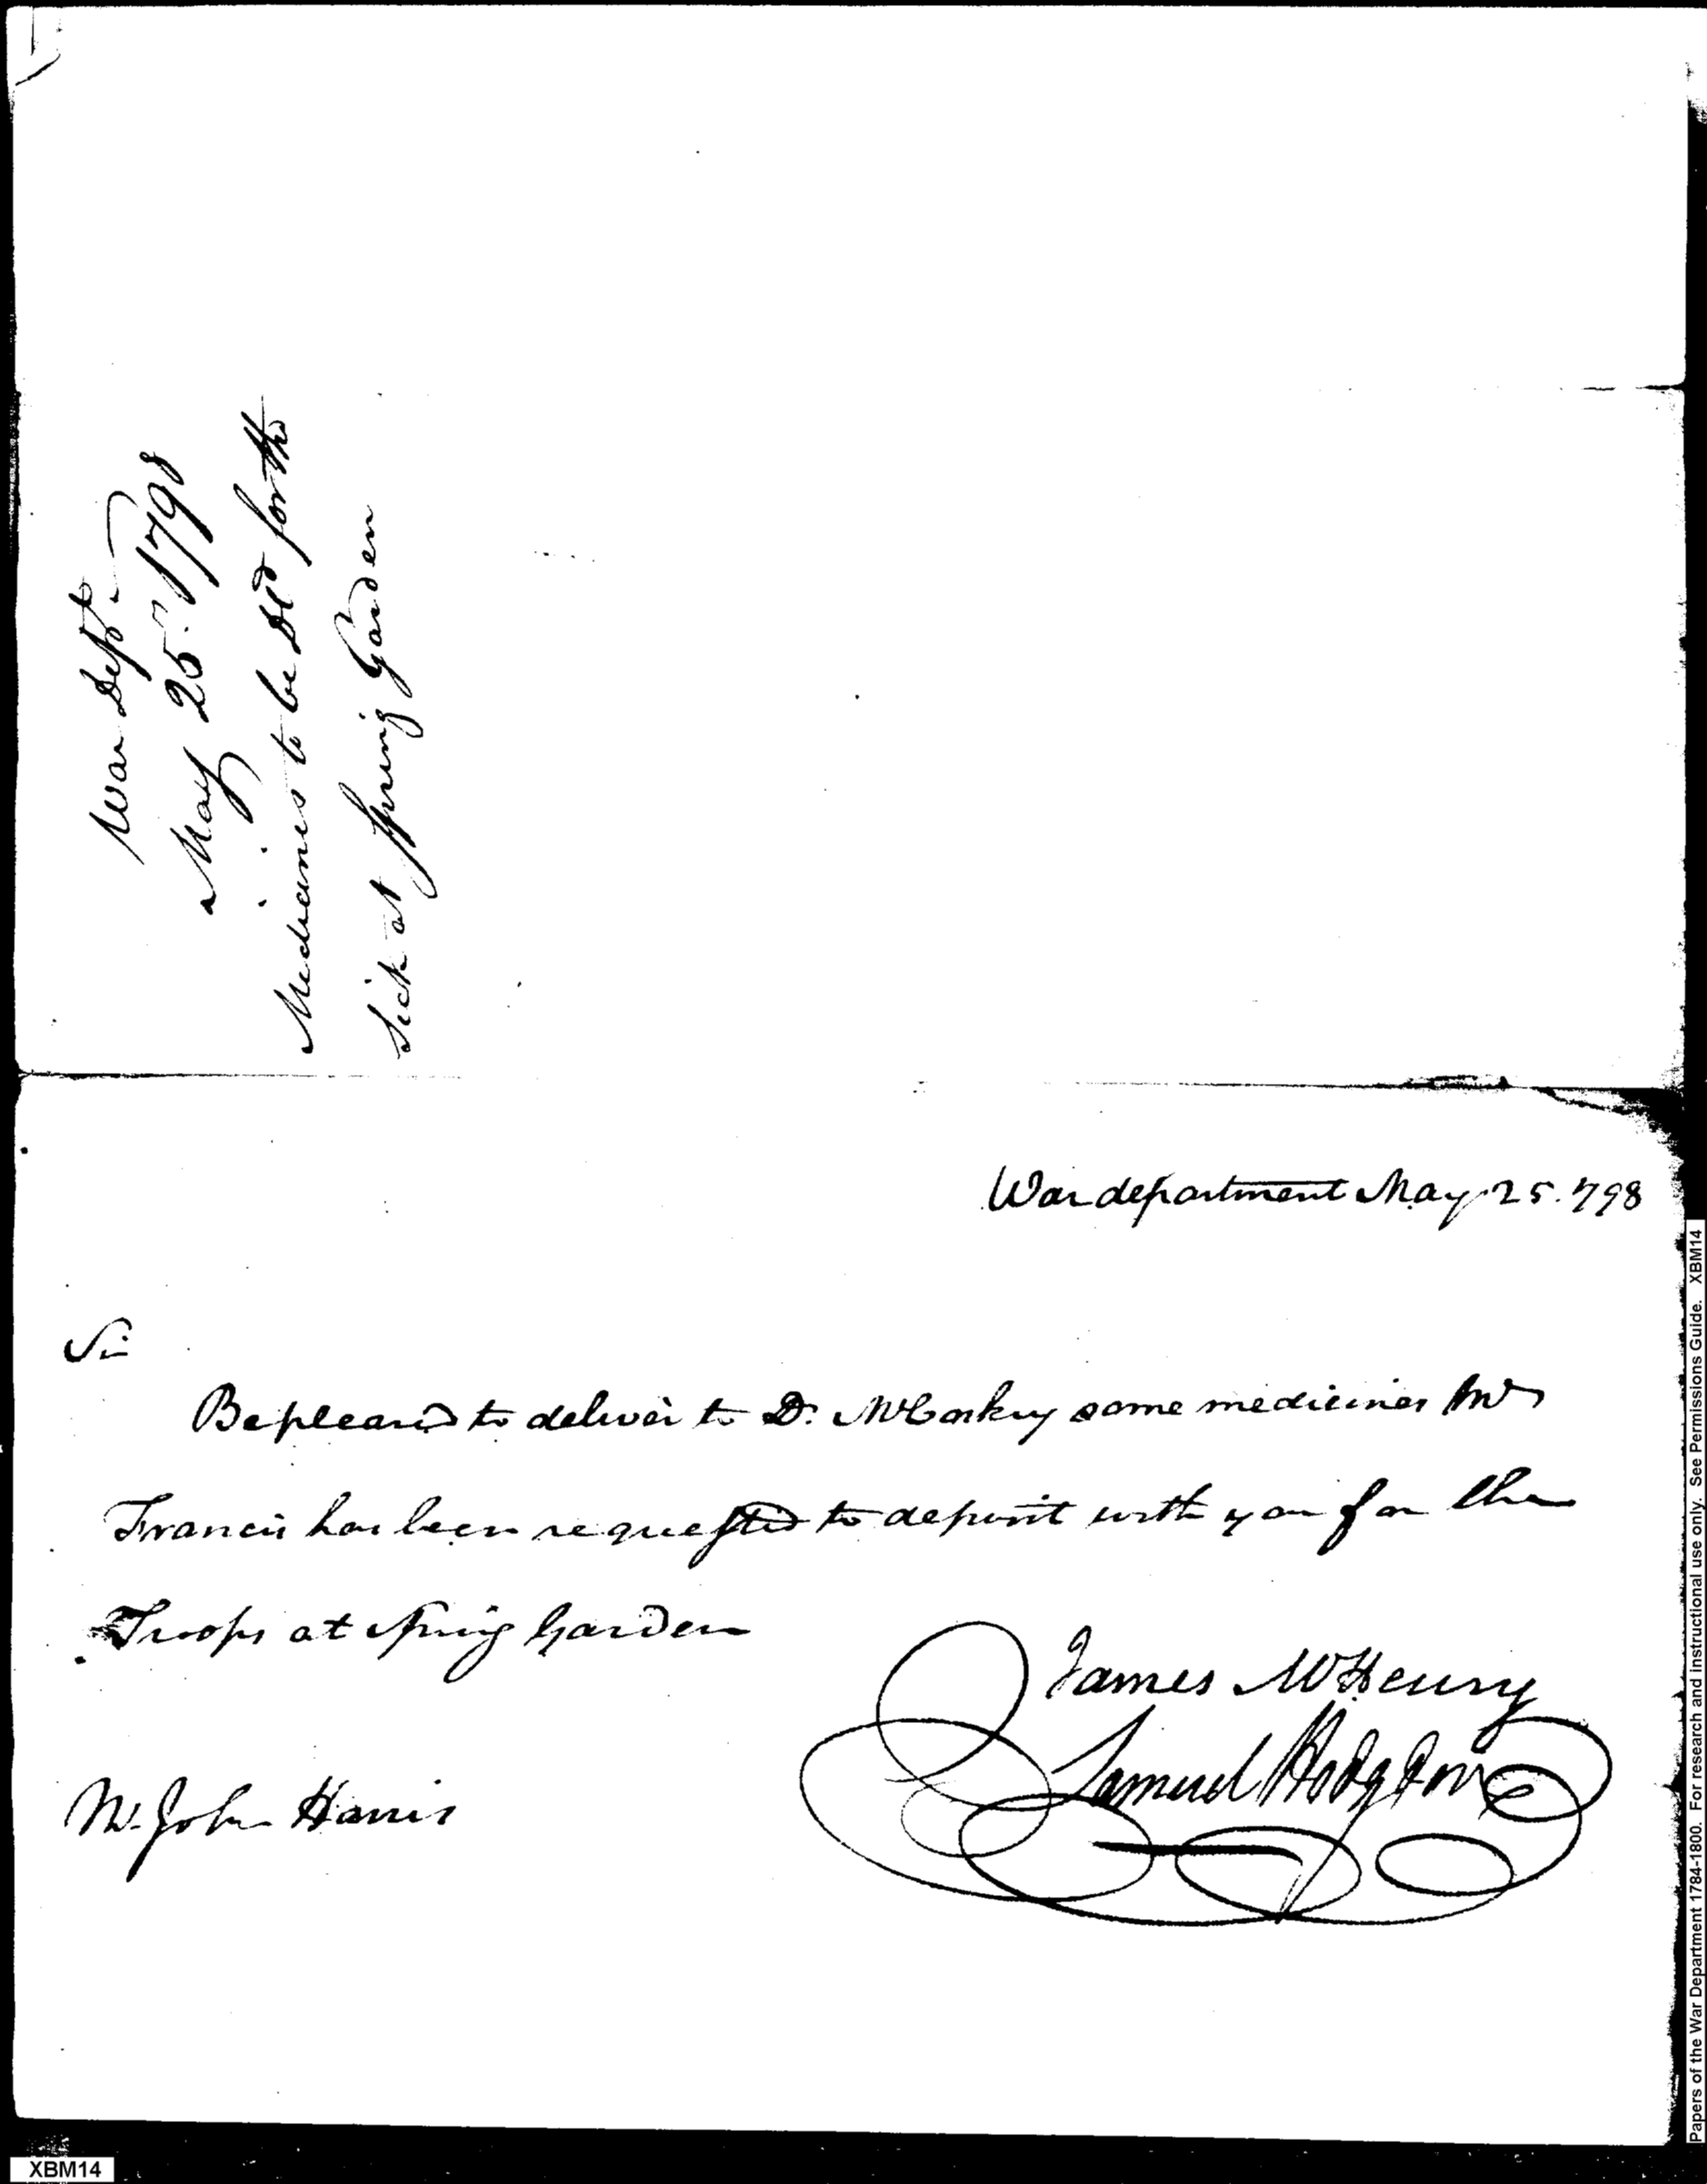 War Dept.
May 25. 1798
Medicines to be dld for the
Sick at Spring Garden
War department May 25. 798
Sir
Be pleased to deliver to Dr. McCoskry some medicines Mr
Francis has been requested to deposit with you for the
Troops at Spring Garden
James McHenry
Samuel Hodgdon
Mr. John Harris
Papers of the War Department 1784-1800. For research and instructional use only. See Permissions Guide. XBM14
XBM14